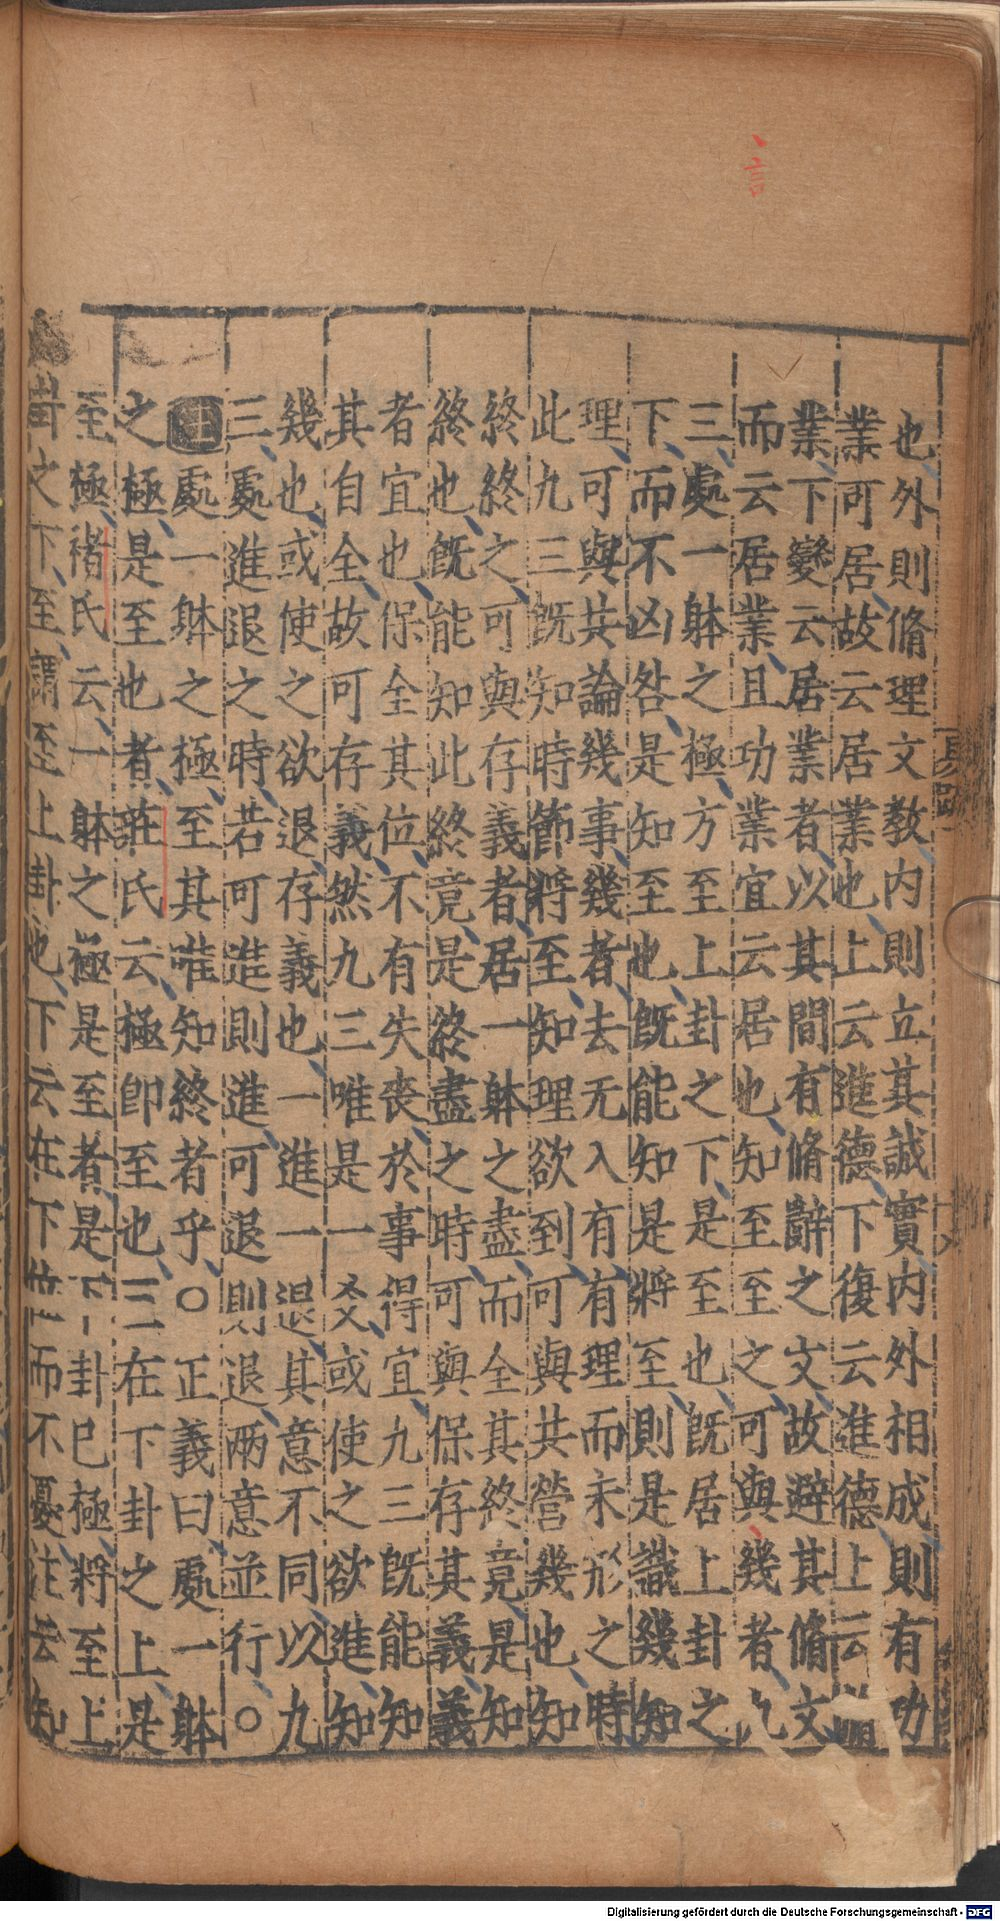 言
也外則脩理文教内則立其誠實内外相成則有功
業可居故云居業也上云進德下復云進德上云脩
業下變云居業者以其間有脩辭之文故避其脩文
而云居業且功業宜云居也知至至之可與幾者九
三處一躰之極方至上卦之下是至也旣居上卦之
下而不凶咎是知至也旣能知是將至則是識幾知
理可與共論幾事幾者去无入有有理而未形之時
此九三旣知時節將至知理欲到可與共營幾也知
終終之可與存義者居一躰之盡而全其終竟是知
終也旣能知此終竟是終盡之時可與保存其義義
者宜也保全其位不有失喪於事得宜九三旣能知
其自全故可存義然九三唯是一爻或使之欲進知
幾也或使之欲退存義也一進一退其意不同以九
三處進退之時若可進則進可退則退兩意並行○
注處一躰之極至其唯知終者乎○正義曰處一躰
之極是至也者莊氏云極即至也三在下卦之上是
至極褚氏云一躰之極是至者是下卦已極將至上
卦之下至謂至上卦也下云在下位而不憂注云知
易疏
Digitalisierung gefördert durch die Deutsche Forschungsgemeinschaft - DFG